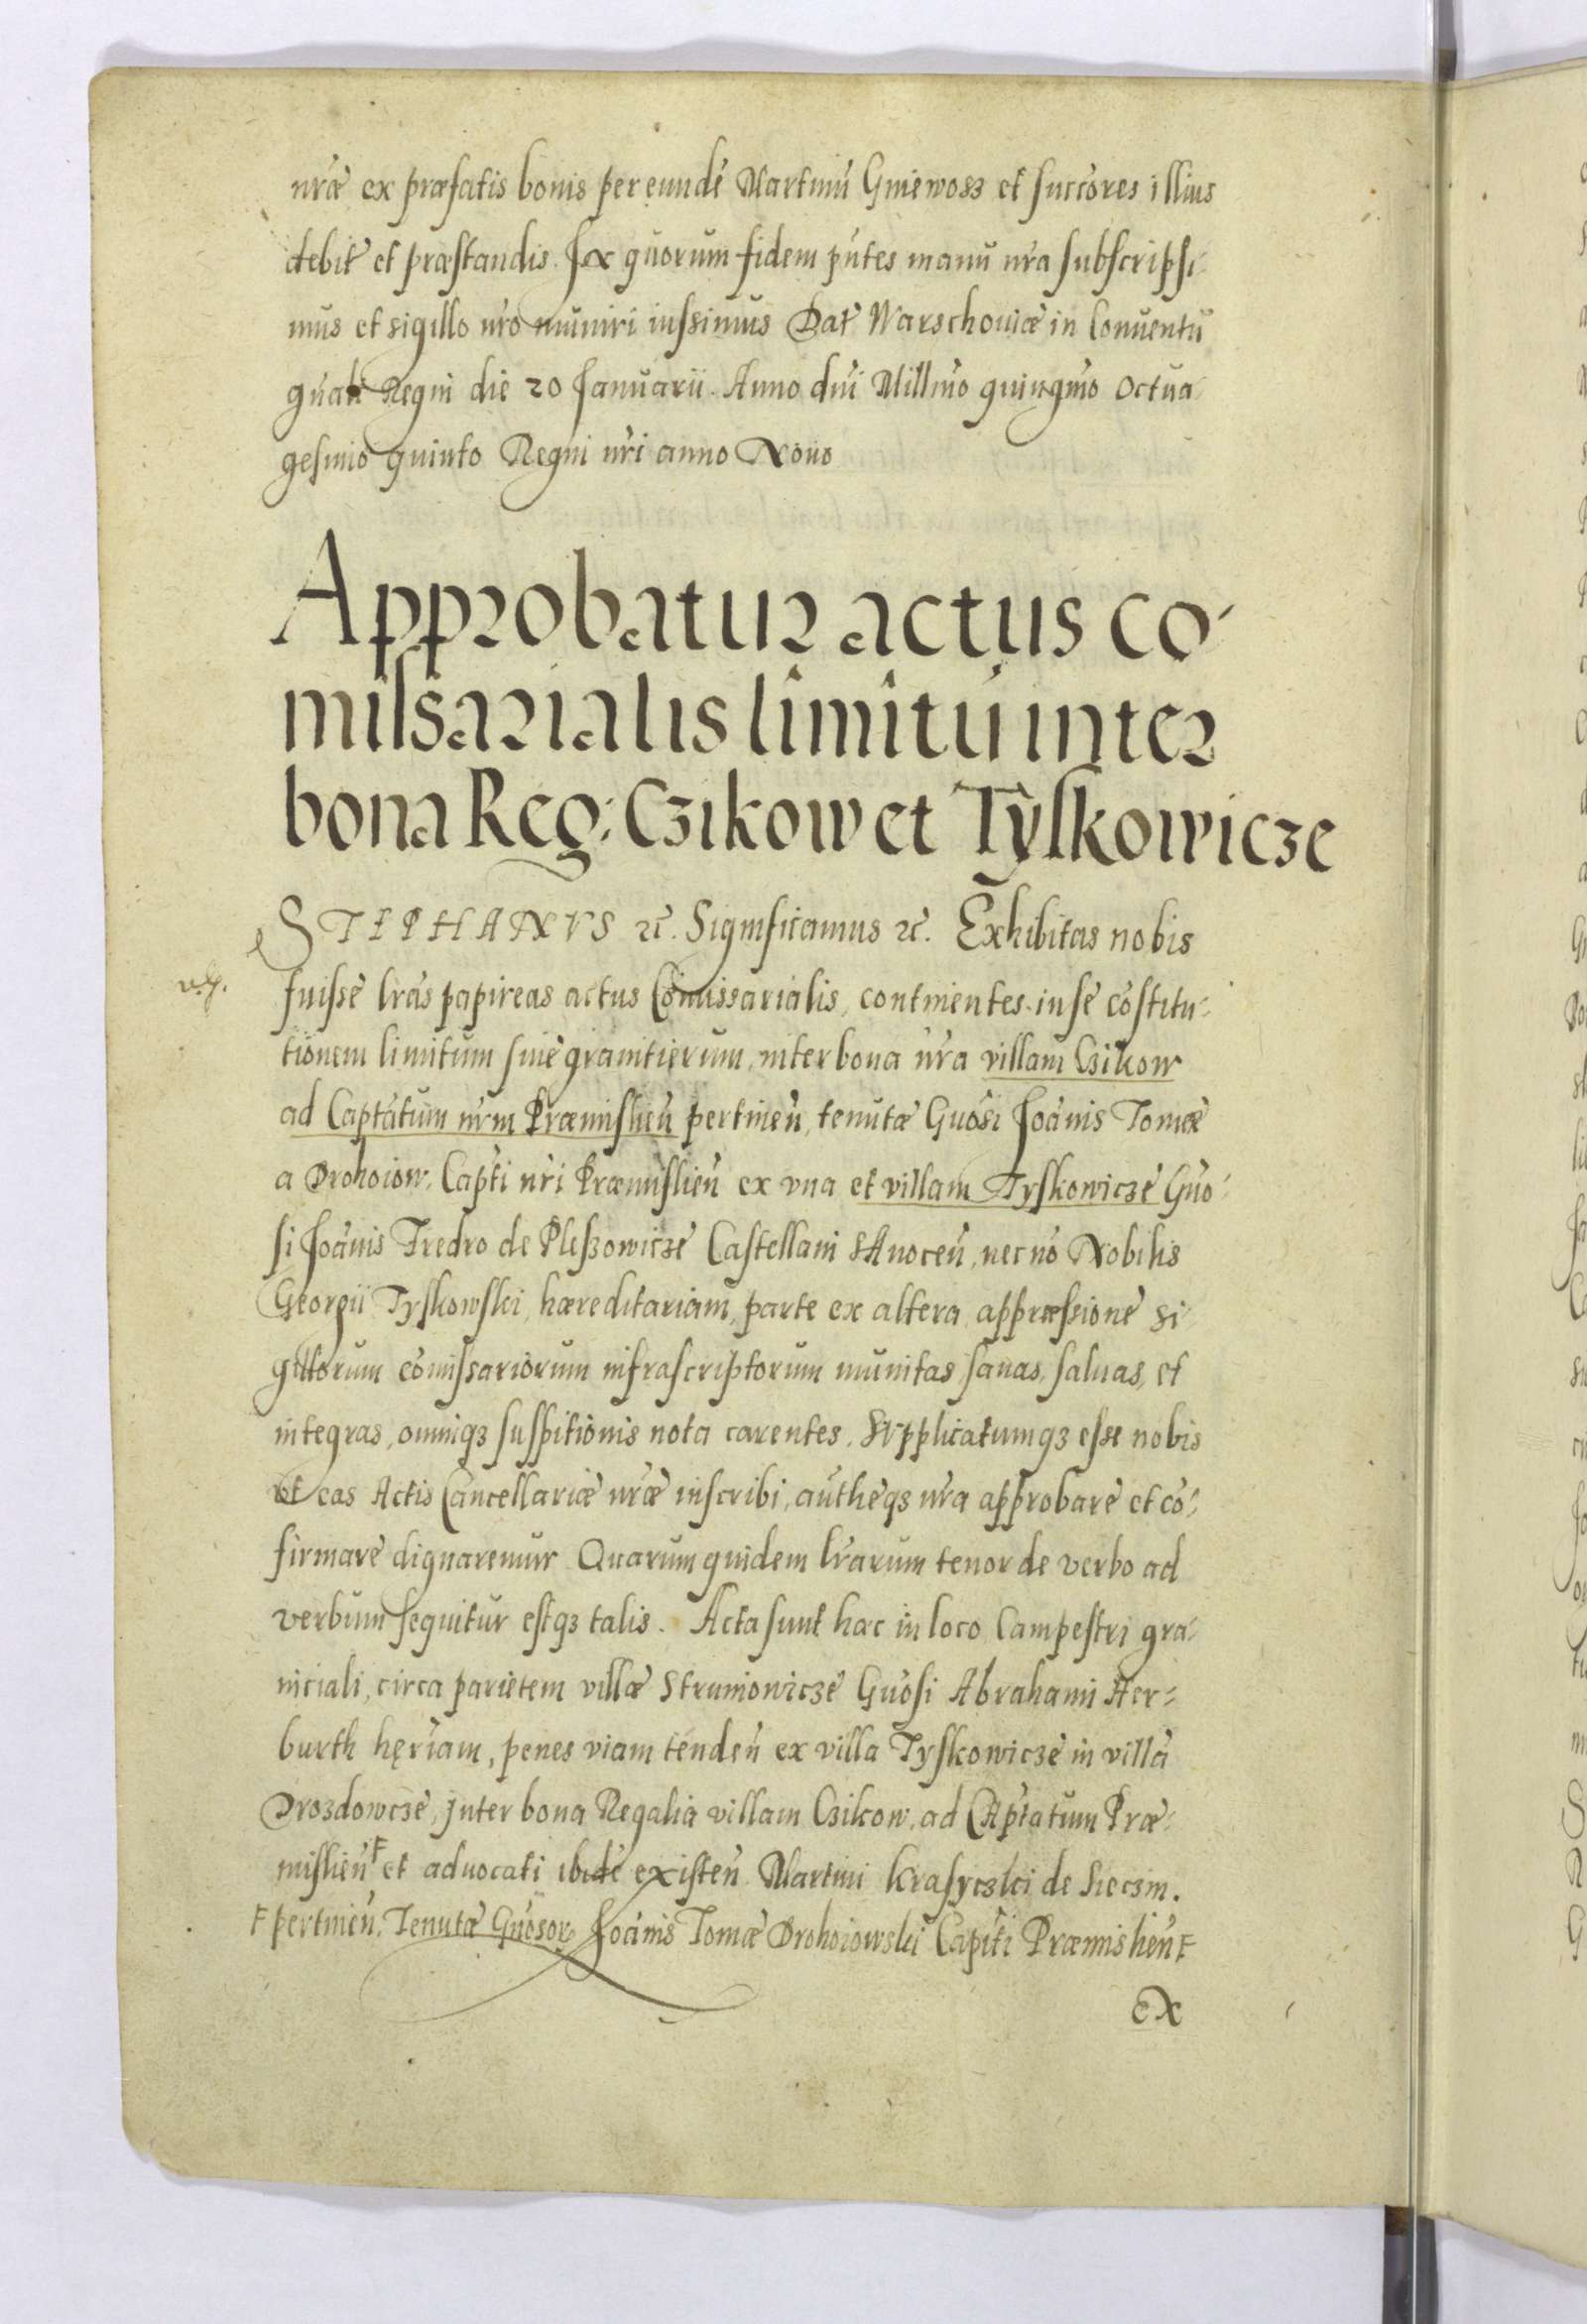 nrae ex praefatis bonis per eunde Martinu Gniewosz et succores illius
debit et praestandis. In quorum fidem pntes manu nra subscripsi-
mus et sigillo nro muniri iussimus Dat Warschoviae in Conventu
gnali Regni die 20 Januarii. Anno dni Millmo quingmo Octua-
gesimo quinto Regni nri anno Nono
Approbatur actus co-
missarialis limitu inter
bona Reg: Czikow et Tyskowicze
STEPHANVS etc. Significamus etc. Exhibitas nobis
fuisse lras papireas actus Comissarialis, continentes in se costitu-
tionem limitum sive granitierum, inter bona nra villam Czikow
ad Captatum nrm Praemislien pertinen, tenutae Gnosi Joanis Tomae
a Drohoiow, Capti nri Praemislien ex vna et villam Tyskowicze Gno-
si Joanis Fredro de Pleszowicze Castellani SAnocen, nec no Nobilis
Georgii Tyskowski, haereditariam, parte ex altera appraessione si-
gillorum comissariorum infrascriptorum munitas, sanas, salvas, et
integras, omniqz suspitionis nota carentes. SVpplicatumqz esse nobis
vt eas Actis Cancellariae nrae inscribi, autheqs nra approbare et co-
firmare dignaremur Quarum quidem lrarum tenor de verbo ad
verbum sequitur estqz talis. Acta sunt haec in loco Campestri gra-
niciali, circa parietem villae Struniowicze Gnosi Abrahami Her-
burth hęriam, penes viam tenden ex villa Tyskowicze in villa
Drozdowcze, Inter bona Regalia villam Czikow, ad CAptatum Prae-
mislien F et advocati ibide existen Martini Krasyczki de Sieczin.
F pertinen, Tenutae Gnosor Joanis Tomae Drohoiowski Capiti Praemislien F
Ex